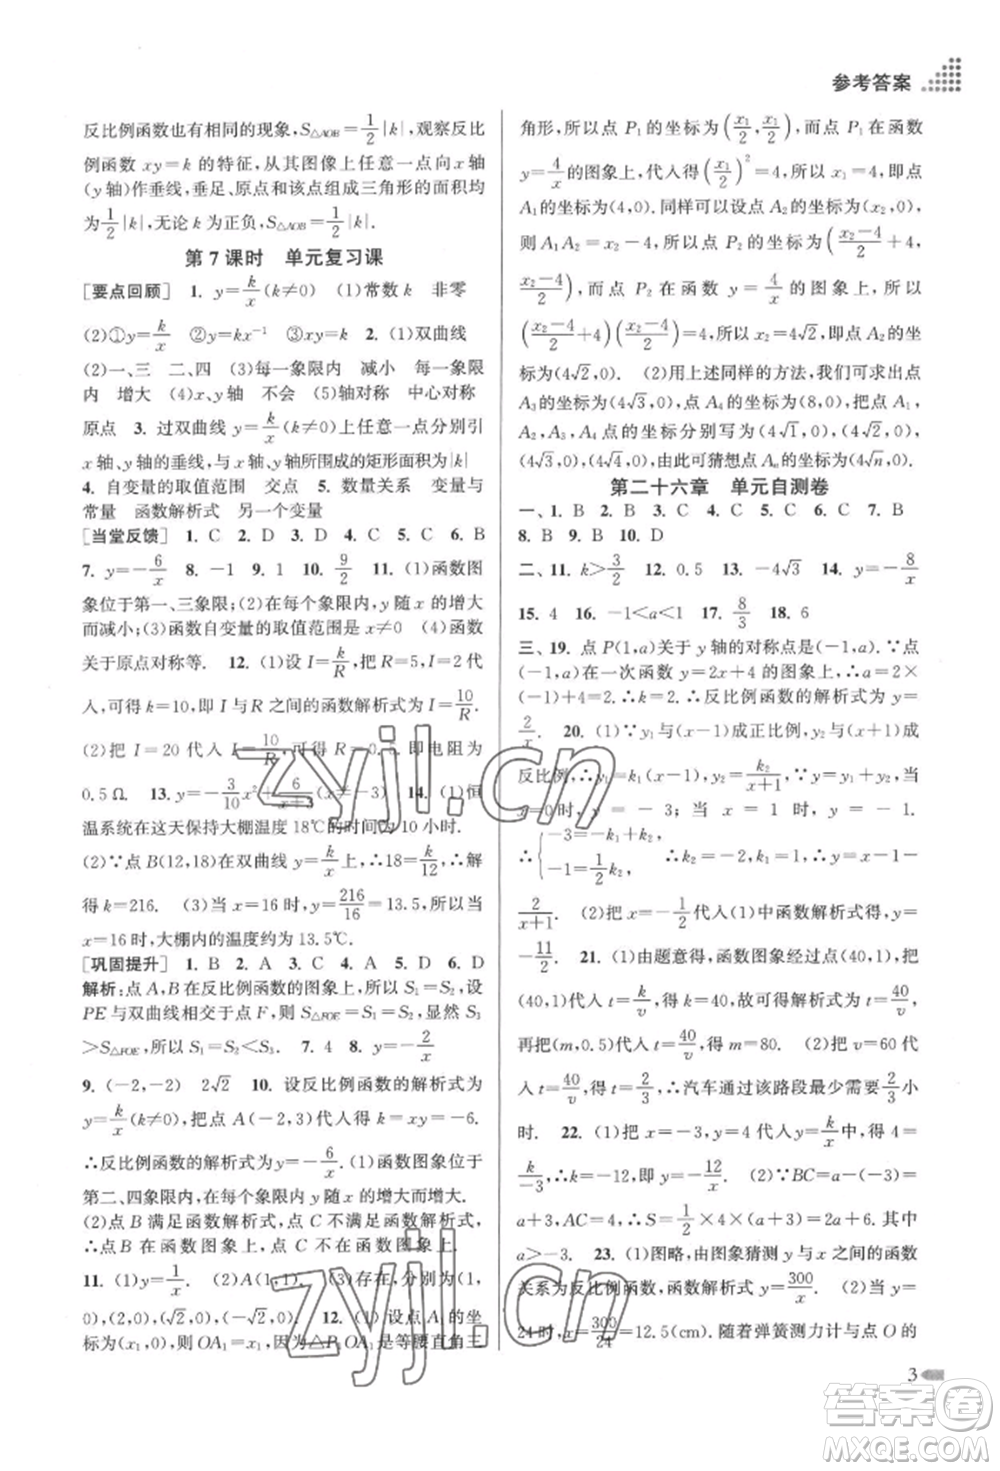 参考答案
反比例函数也有相同的现象,S△AOB=1/2|k|,观察反比
例函数 xy=k 的特征,从其图像上任意一点向 x 轴
(y 轴)作垂线,垂足、原点和该点组成三角形的面积均
为1/2|k|,无论 k 为正负,S△AOB=1/2|k|.
第 7 课时 单元复习课
[要点回顾] 1. y=k/x(k≠0) (1)常数 k 非零
(2)①y=k/x ②y=kx⁻¹ ③xy=k 2. (1)双曲线
(2)一、三 二、四 (3)每一象限内 减小 每一象限
内 增大 (4)x、y 轴 不会 (5)轴对称 中心对称
原点 3. 过双曲线 y=k/x(k≠0)上任意一点分别引
x 轴、y 轴的垂线,与 x 轴、y 轴所围成的矩形面积为|k|
4. 自变量的取值范围 交点 5. 数量关系 变量与
常量 函数解析式 另一个变量
[当堂反馈] 1. C 2. D 3. D 4. C 5. C 6. B
7. y=-6/x 8. -1 9. 1 10. 9/2 11. (1)函数图
象位于第一、三象限;(2)在每个象限内,y 随 x 的增大
而减小;(3)函数自变量的取值范围是 x≠0 (4)函数
关于原点对称等. 12. (1)设 I=k/R,把 R=5,I=2 代
入,可得 k=10,即 I 与 R 之间的函数解析式为 I=10/R.
(2)把 I=20 代入 I=10/R,可得 R=0.5,即电阻为
0.5 Ω. 13. y=-3/10x²+6/(x+3) 14. (1)恒
温系统在这天保持大棚温度 18℃的时间为 10 小时.
(2)∵点 B(12,18)在双曲线 y=k/x上,∴18=k/12,∴解
得 k=216. (3)当 x=16 时,y=216/16=13.5,所以当
x=16 时,大棚内的温度约为 13.5℃.
[巩固提升] 1. B 2. A 3. C 4. A 5. D 6. D
解析:点 A,B 在反比例函数的图象上,所以 S₁=S₂,设
PE 与双曲线相交于点 F,则 S△FOE=S₁=S₂,显然 S₃
>S△FOE,所以 S₁=S₂<S₃. 7. 4 8. y=-2/x
9. (-2,-2) 2√2 10. 设反比例函数的解析式为
y=k/x(k≠0),把点 A(-2,3)代入,得 k=xy=-6.
∴反比例函数的解析式为 y=-6/x.(1)函数图象位于
第二、四象限内,在每个象限内 y 随 x 的增大而增大.
(2)点 B 满足函数解析式,点 C 不满足函数解析式.
∴点 B 在函数图象上,点 C 不在函数图象上.
11. (1)y=1/x. (2)A(1,1). (3)存在,分别为(1,
0),(2,0),(√2,0),(-√2,0) 12. (1)设点 A₁的坐
标为(x₁,0),则 OA₁=x₁,因为△P₁OA₁是等腰直角三
角形,所以点 P₁ 的坐标为(x₁/2,x₁/2),而点 P₁ 在函数
y=4/x的图象上,所以(x₁/2)²=4,所以 x₁=4,即点
A₁的坐标为(4,0). 同样可以设点 A₂的坐标为(x₂,
0),所以点 P₂ 的坐标为((x₂-4)/2+4,
(x₂-4)/2),而点 P₂ 在函数 y=4/x的图象上,所以
((x₂-4)/2+4)((x₂-4)/2)=4,所以 x₂=4√2,即点 A₂的坐
标为(4√2,0). (2)用上述同样的方法,我们可以求出点
A₃的坐标为(4√3,0),点 A₄的坐标为(8,0),把点 A₁、
A₂、A₃、A₄ 的坐标分别写为(4√1,0),(4√2,0),
(4√3,0),(4√4,0),由此可猜想点 Aₙ的坐标是(4√n,0).
第二十六章 单元自测卷
一、1. B 2. B 3. D 4. C 5. B 6. C 7. B
8. D 9. B 10. D
二、11. k>3/2 12. 0.5 13. -4√3 14. y=-8/x
15. 4 16. -1<a<1 17. 8/3 18. 6
三、19. 点 P(1,a)关于 y 轴的对称点是(-1,a).∵点
(-1,a)在一次函数 y=2x+4 的图象上,∴a=2×
(-1)+4=2.∴k=2.∴反比例函数的解析式为 y=
2/x. 20. (1)∵y₁与(x-1)成正比例,y₂与(x+1)成
反比例,∴y₁=k₁(x-1),y₂=k₂/(x+1).∵y=y₁+y₂,当
x=0 时,y=-3;当 x=1 时,y=-1.
∴{-3=-k₁+k₂ -1=1/2k₂.
2/(x+1). (2)把 x=-1/2代入(1)中函数解析式得,y=
-11/2. 21. (1)由题意得,函数图象经过点(40,1),把
(40,1)代入 t=k/v,得 k=40,故可得解析式为 t=40/v,
再把(m,0.5)代入 t=40/v,得 m=80. (2)把 v=60 代
入 t=40/v,得 t=2/3,∴汽车通过该路段最少需要2/3小
时. 22. (1)把 x=-3,y=4 代入 y=k/x中,得 4=
k/-3,∴k=-12,即 y=-12/x. (2)∵BC=a-(-3)=a
+3,AC=4,∴S=1/2×4×(a+3)=2a+6.其中
a>-3. 23. (1)图略,由图象猜测 y 与 x 之间的函数
关系为反比例函数,函数解析式 y=300/x. (2)当 y=
24 时,x=300/24=12.5(cm). 随着弹簧测力计与点 O 的
3
zyjl.cn
zyjl.cn
答案圈
MXQE.COM